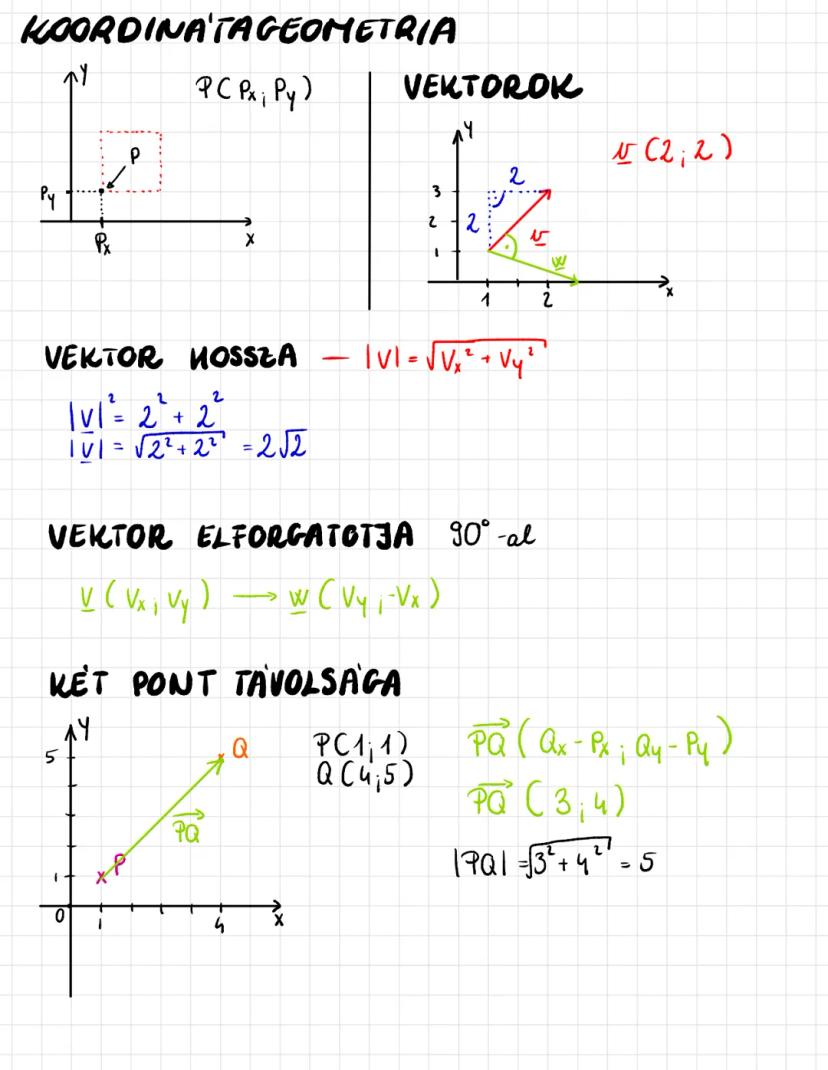 KOORDINÁTAGEOMETRIA
Y
P(Px; Py)
P
Py
Px
x
VEKTOROK
Y
v (2; 2)
2
3
2
2
v
1
w
1
2
x
VEKTOR HOSSZA — |V| = √Vx² + Vy²
|v|² = 2² + 2²
|v| = √2² + 2² = 2√2
VEKTOR ELFORGATOTJA 90°-al
v (Vx; Vy) → w (Vy; -Vx)
KÉT PONT TÁVOLSÁGA
Y
5
Q
P(1;1)
Q(4;5)
PQ
P
1
0
1
4
x
PQ (Qx - Px; Qy - Py)
PQ (3; 4)
|PQ| = √3² + 4² = 5